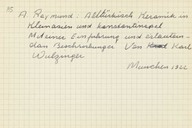 A Raymund: Alttürkisch Keramik in
Kleinasien und Konstantinopel
Mdeiner Einfuhrung und erlauten-
dan Beschreibungen Von Karl
Wulzinger
München 1922